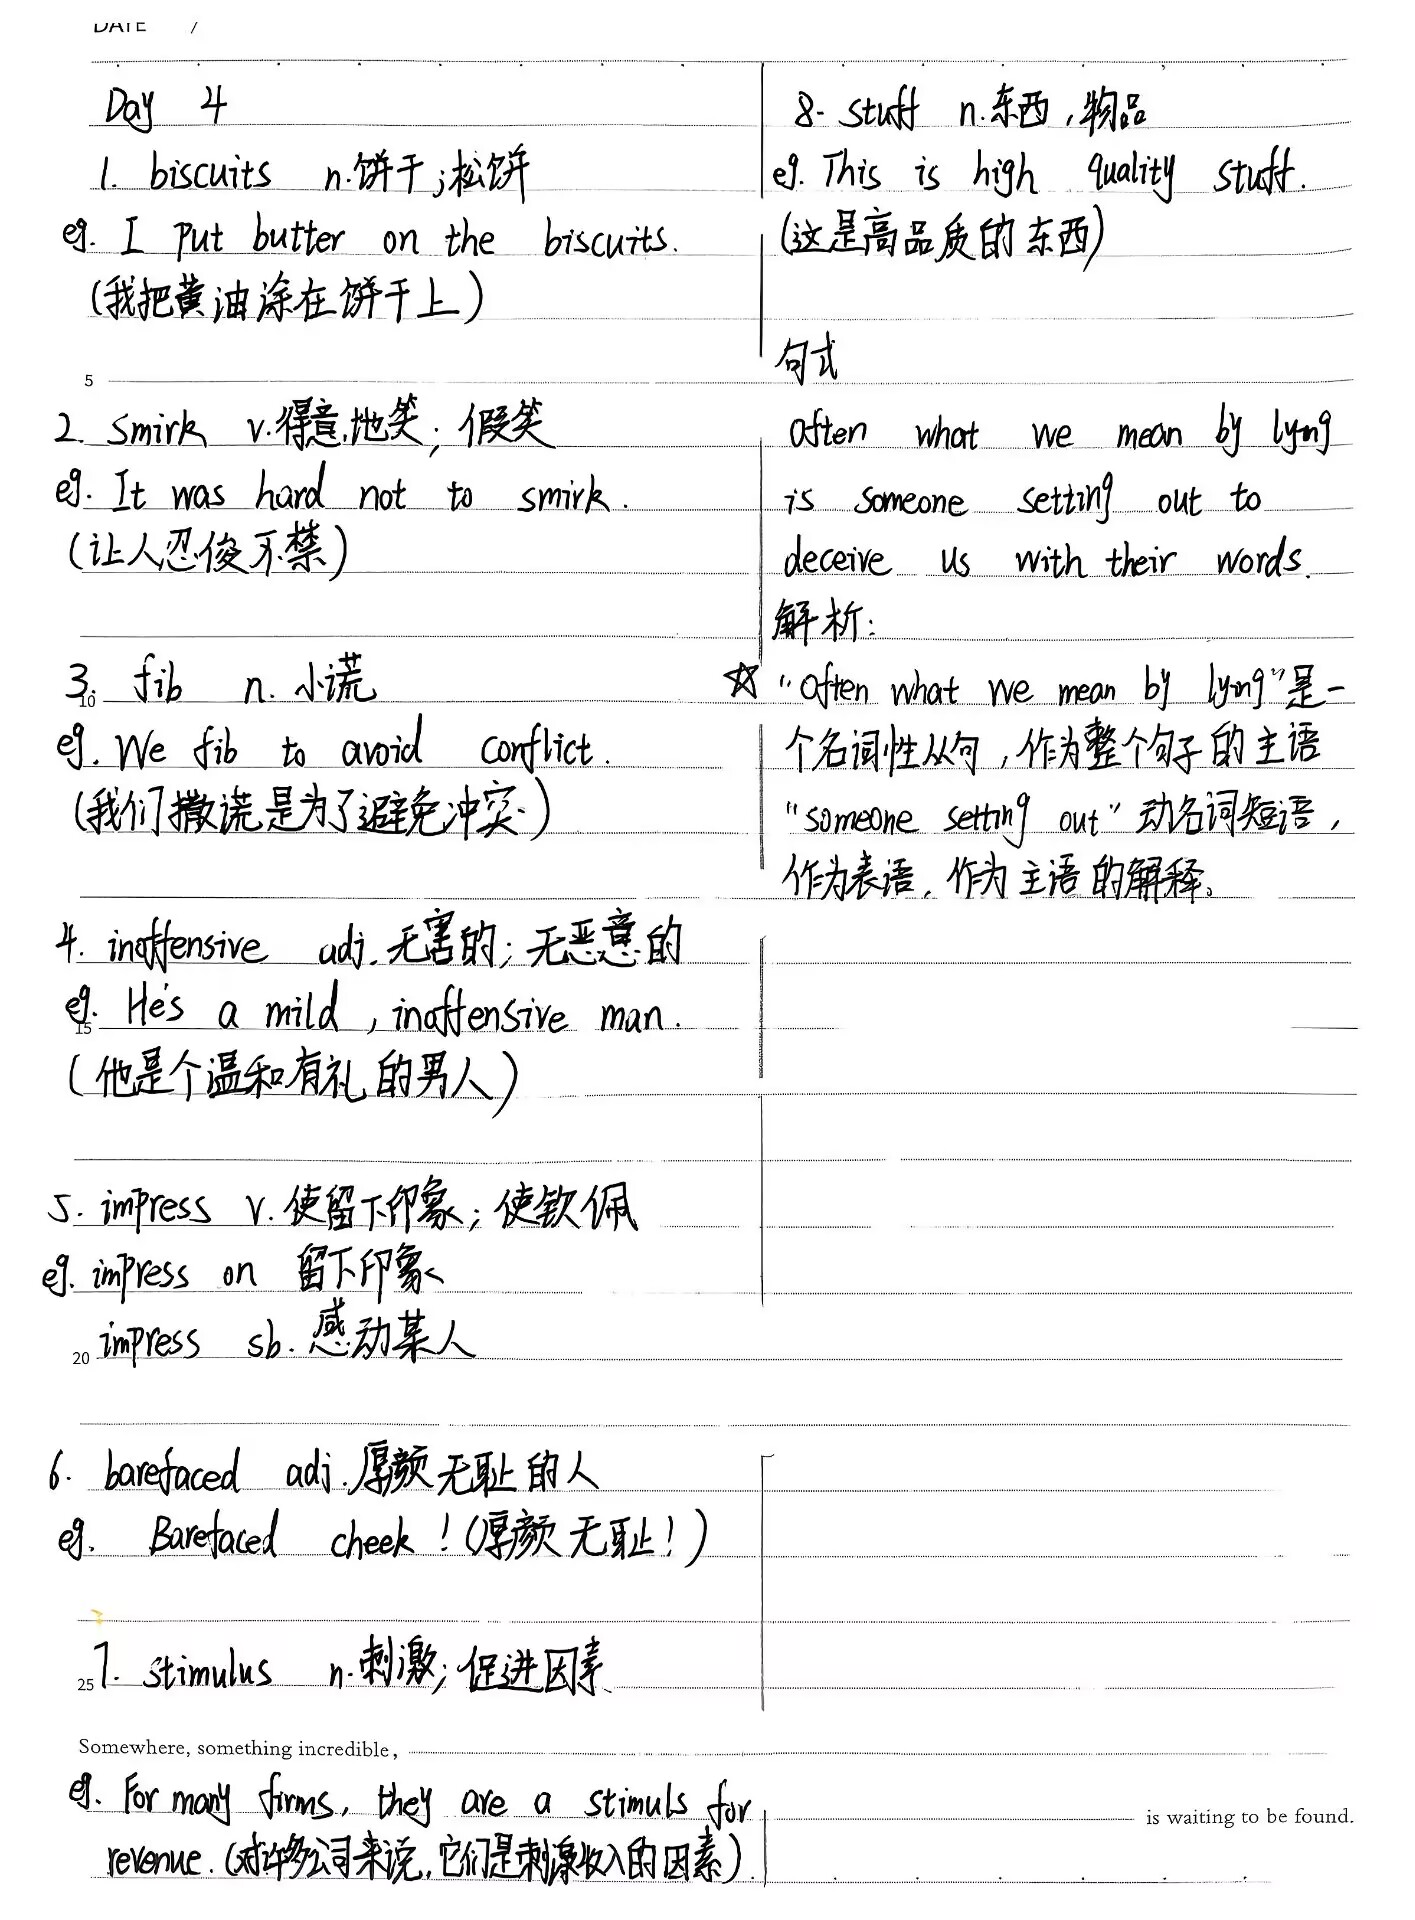 DATE /
Day 4
1. biscuits n.饼干;松饼
eg. I put butter on the biscuits.
(我把黄油涂在饼干上)
5
2. smirk v.得意地笑; 假笑
eg. It was hard not to smirk.
(让人忍俊不禁)
3. fib n. 小谎
10
eg. We fib to avoid conflict.
(我们撒谎是为了避免冲突.)
4. inoffensive adj.无害的; 无恶意的
eg. He's a mild , inoffensive man.
15
(他是个温和有礼的男人)
5. impress v.使留下印象; 使钦佩
eg. impress on 留下印象
impress sb. 感动某人
20
6. barefaced adj.厚颜无耻的人
eg. Barefaced cheek ! (厚颜无耻! )
7. stimulus n.刺激; 促进因素
25
Somewhere, something incredible,
eg. For many firms, they are a stimuls for
revenue. (对许多公司来说,它们是刺激收入的因素)
8. stuff n.东西,物品
eg. This is high quality stuff.
(这是高品质的东西)
句式
Often what we mean by lying
is someone setting out to
deceive us with their words.
解析:
☆ "Often what we mean by lying"是一
个名词性从句,作为整个句子的主语
"someone setting out" 动名词短语,
作为表语,作为主语的解释。
is waiting to be found.